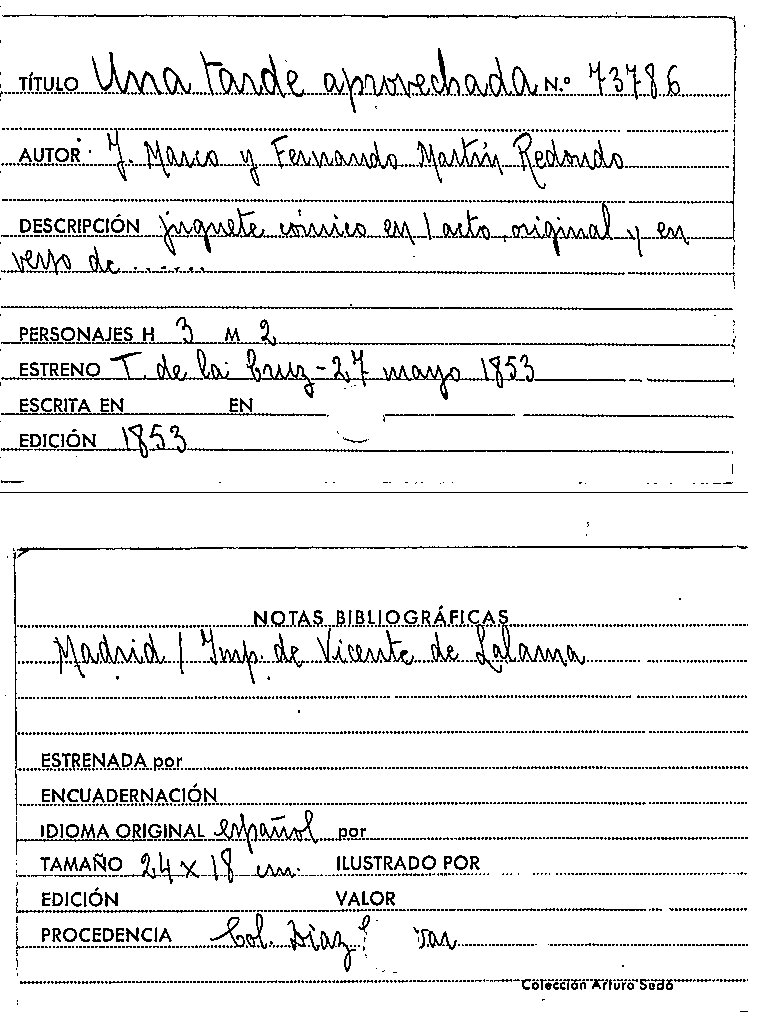 TÍTULO Una tarde aprovechada N.º 73786
AUTOR J. Marco y Fernando Martín Redondo
DESCRIPCIÓN juguete cómico en 1 acto, original y en
verso de .......
PERSONAJES H 3 M 2
ESTRENO T. de la Cruz - 27 mayo 1853
ESCRITA EN EN
EDICIÓN 1853
NOTAS BIBLIOGRÁFICAS
Madrid / Imp. de Vicente de Lalama
ESTRENADA por
ENCUADERNACIÓN
IDIOMA ORIGINAL español por
TAMAÑO 24 x 18 cm. ILUSTRADO POR
EDICIÓN VALOR
PROCEDENCIA Col. Díaz
Colección Arturo Sedó